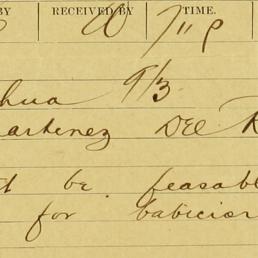 BY RECEIVED BY TIME.
711 P
hua 9/3
artinez Del R
t be feasabl
for